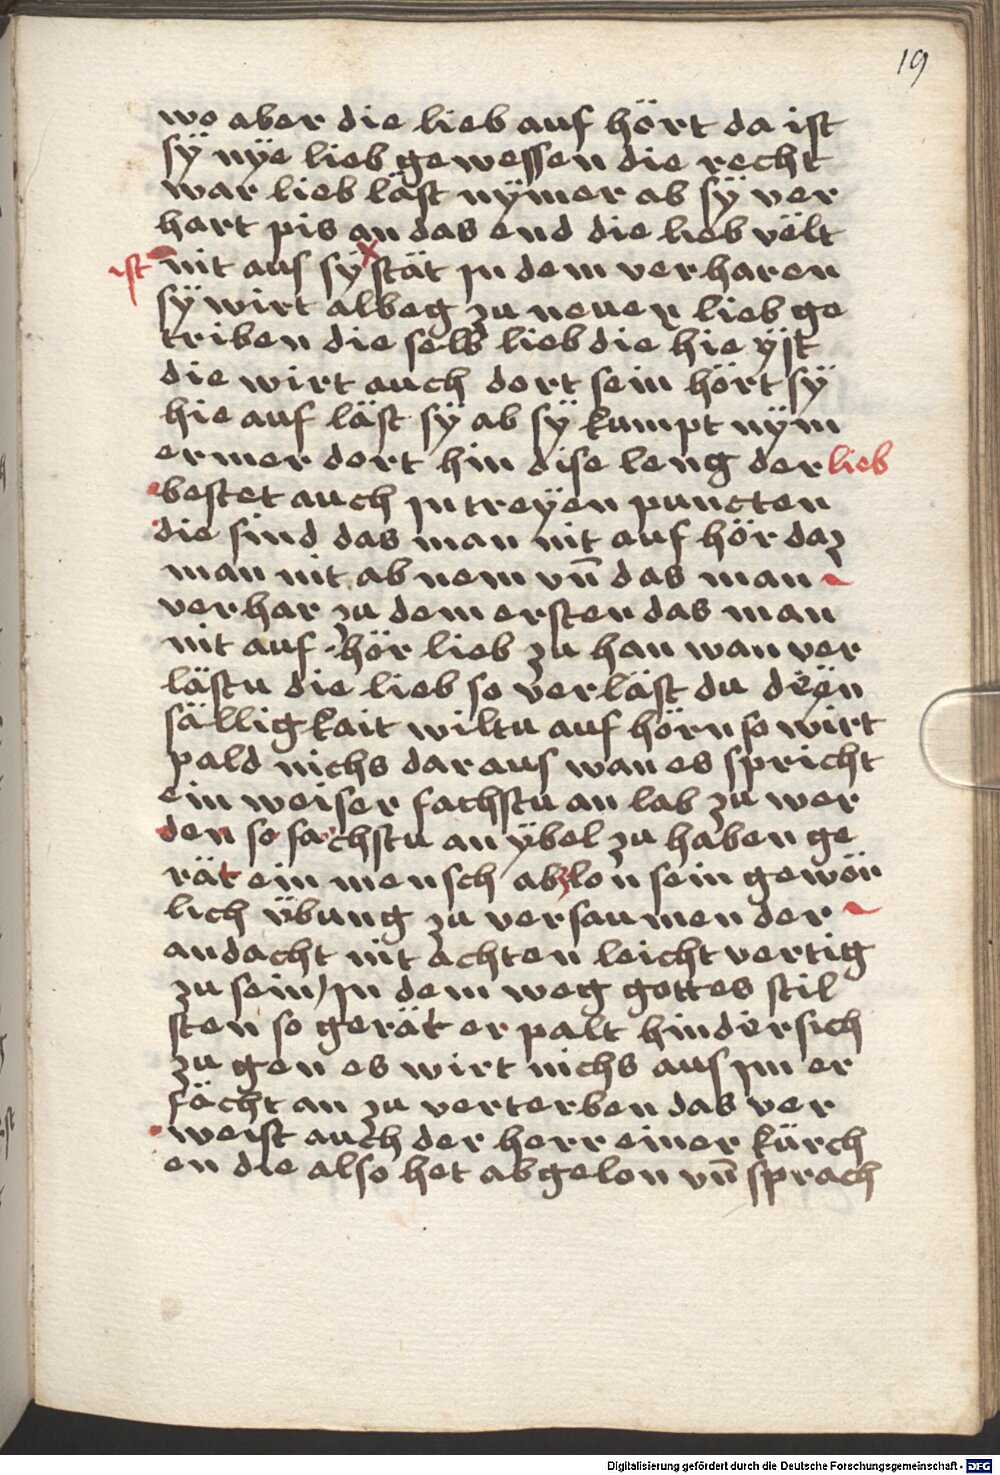 19
wo aber die lieb auf hört da ist
sÿ nÿe lieb gewessen die recht
war lieb läst nÿmer ab sÿ ver
hart pis an das end die lieb velt
ist nit aus sy x stät jn dem verharen
sÿ wirt albeg zu neuer lieb ge
triben die selb lieb die hie ÿst
die wirt auch dort sein hört sÿ
hie auf läst sÿ ab sÿ kumpt nÿm
ermer dort hin dise leng der lieb
bestet auch jn treÿen puncten
die sind das man nit auf hör daz
man nit ab nem vn̄ das man
verhar zu dem ersten das man
nit auf hör lieb zu han wan ver
lästu die lieb so verläst du dein
sälligkait wiltu auf hörn so wirt
pald nichs daraus wan es spricht
ein weiser fachstu an lab zu wer
den so fachstu an ÿbel zu haben ge
rät ein mensch ab z lon sein gewön
lich übung zu versaumen der
andacht nit achten leicht vertig
zu sein / jn dem weg gottes stil
sten so gerät er palt hindersich
zu gen es wirt nichs aus jm er
fächt an zu verterben das ver
weist auch der herr einer kürch
en die also het abgelon vn̄ sprach
Digitalisierung gefördert durch die Deutsche Forschungsgemeinschaft - DFG